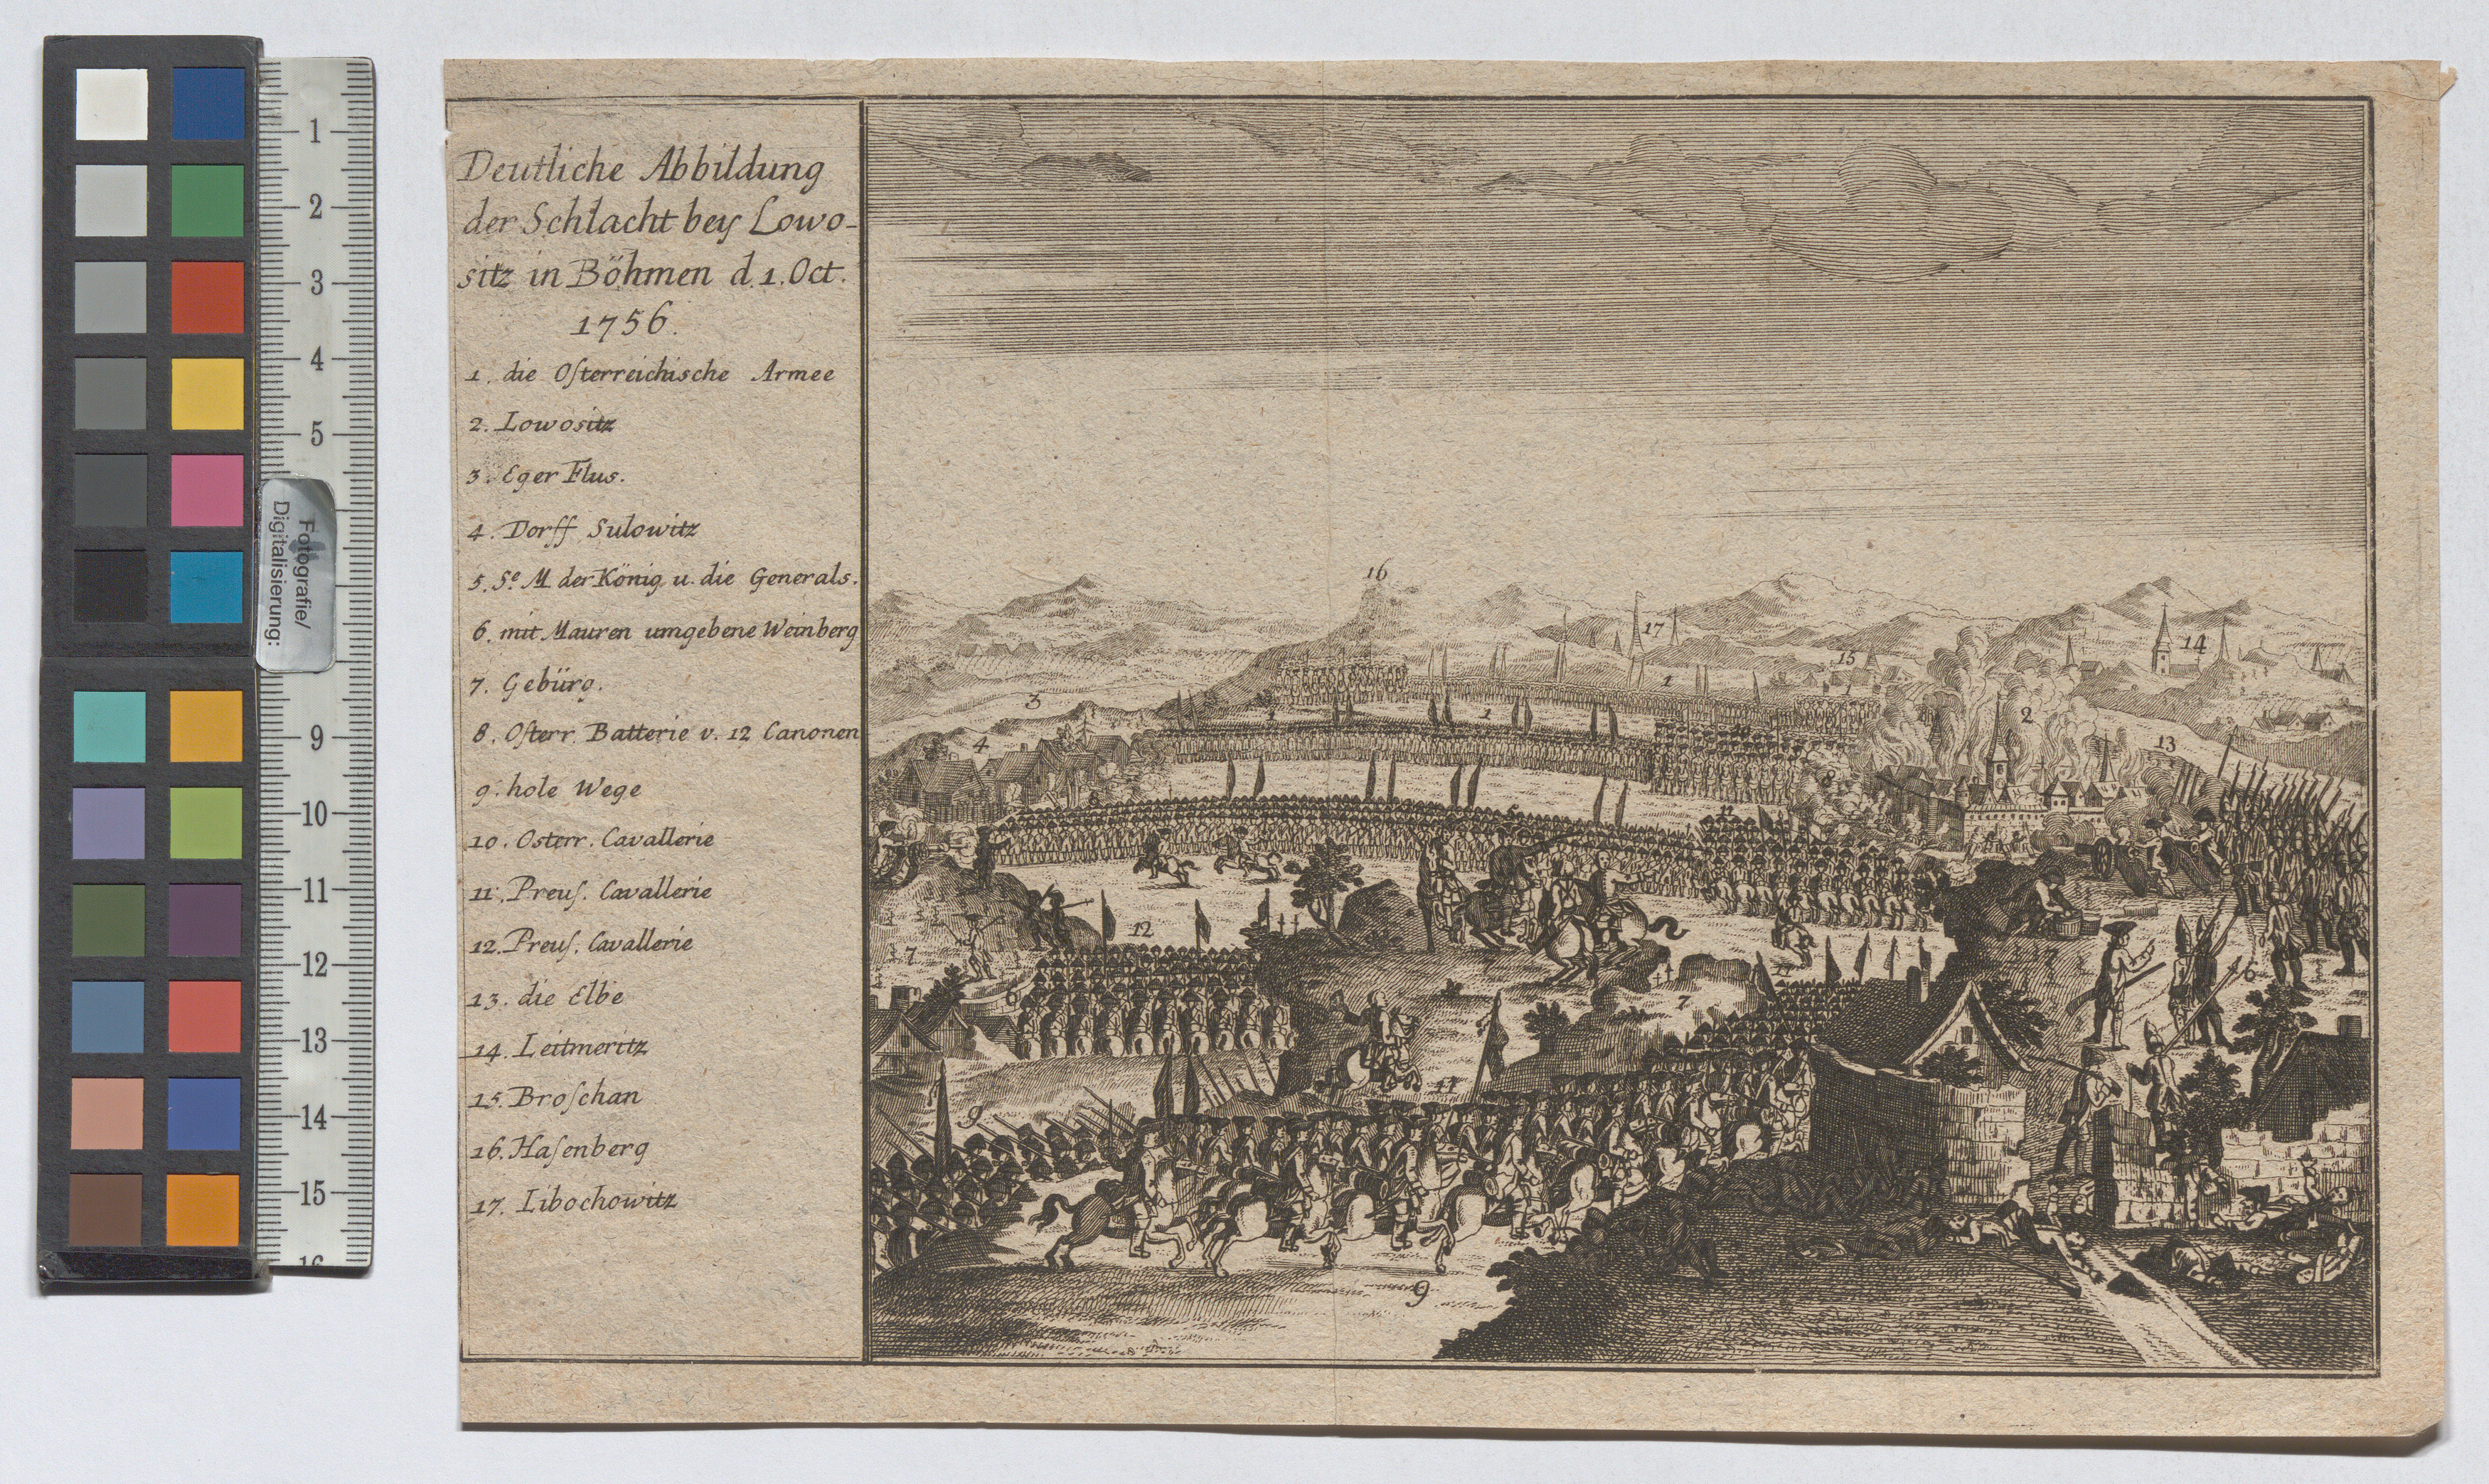 Deutliche Abbildung
der Schlacht bey Lowo-
sitz in Böhmen d. 1. Oct.
1756.
1. die Oſterreichische Armee
2. Lowositz
3. Eger Flus.
4. Dorff Sulowitz
5. Se. M der König u. die Generals.
6. mit Mauren umgebene Weinberg
7. Gebürg.
8. Oſterr. Batterie v. 12 Canonen
9. hole Wege
10. Osterr. Cavallerie
11. Preuſ. Cavallerie
12. Preuſ. Cavallerie
13. die Elbe
14. Leitmeritz
15. Broſchan
16. Haſenberg
17. Libochowitz
16
17
15
14
1
3
1
1
2
4
13
10
8
12
7
6
7
11
11
9
9
1
2
3
4
5
Fotografie/
Digitalisierung:
9
10
11
12
13
14
15
16